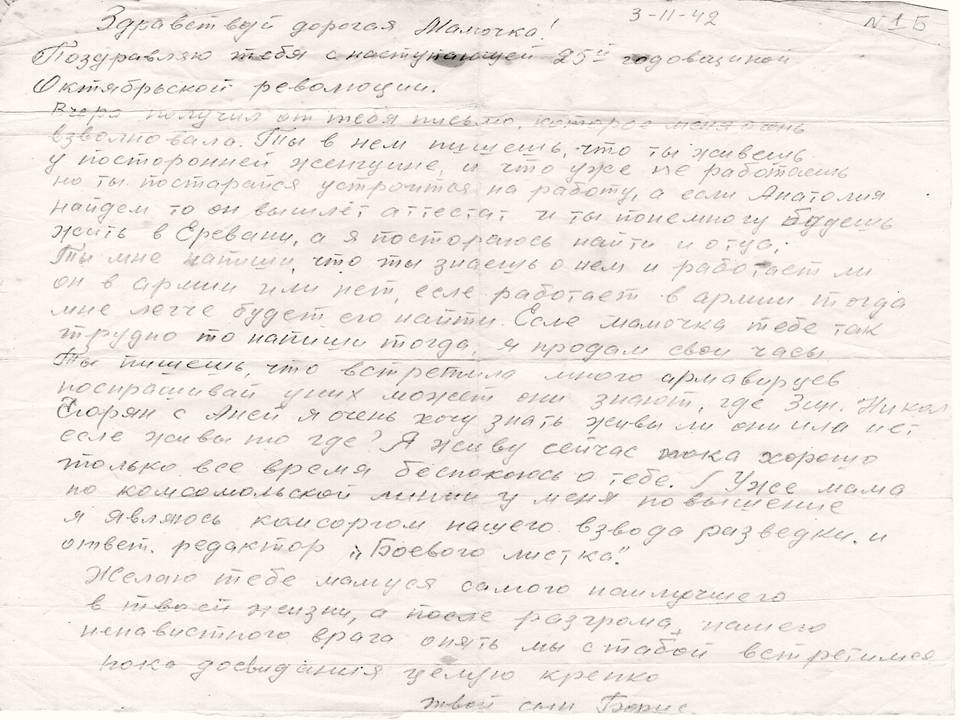 Здравствуй дорогая Мамочка! 3-11-42 №1Б
Поздравляю тебя с наступающей 25ой годовщиной
Октябрьской революции.
Вчера получил от тебя письмо, которое меня очень
взволновала. Ты в нем пишешь, что ты живешь
у посторонней женщине, и что уже не работаешь
но ты постарайся устроится на работу, а если Анатолия
найдем то он вышлет аттестат и ты понемногу будешь
жить в Еревани, а я постораюсь найти и отца;
Ты мне напиши, что ты знаешь о нем и работает ли
он в армии или нет, есле работает в армии тогда
мне легче будет его найти. Есле мамочка тебе так
трудно то напиши тогда, я продам свои часы
Ты пишешь, что встретила много армавирцев
поспрашивай у них может они знают, где Зин. Никол.
Егорян с Аней я очень хочу знать живы ли они или нет
есле живы то где? Я живу сейчас пока хорошо
только все время беспокоюсь о тебе. Уже мама
по комсомольской линии у меня повышение
я являюсь комсоргом нашего взвода разведки. и
ответ. редактор „Боевого листка".
Желаю тебе мамуся самого наилучшего
в твоей жизни, а после разгрома, нашего
ненавистного врага опять мы стабой встретимся
пока досвидания целую крепко
твой сын Борис.